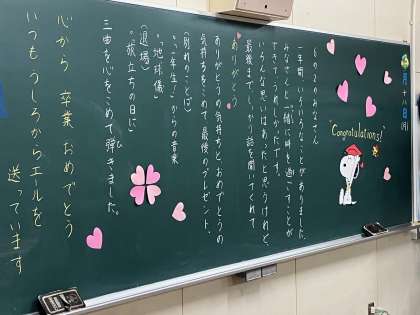 月十八日(月)
Congratulations!
6の2のみなさん
一年間、いろいろなことがありました。
みなさんと一緒に時を過ごすことが
できてうれしかったです。
いろんな思いはあったと思うけれど、
最後までしっかり話を聞いてくれて
ありがとう
ありがとうの気持ちとおめでとうの
気持ちをこめて、最後のプレゼント。
(別れのことば)
「一年生!」からの音楽
「地球儀」
(退場)
「旅立ちの日に」
三曲を心をこめて弾きました。
心から 卒業 おめでとう
いつも うしろからエールを
送っています